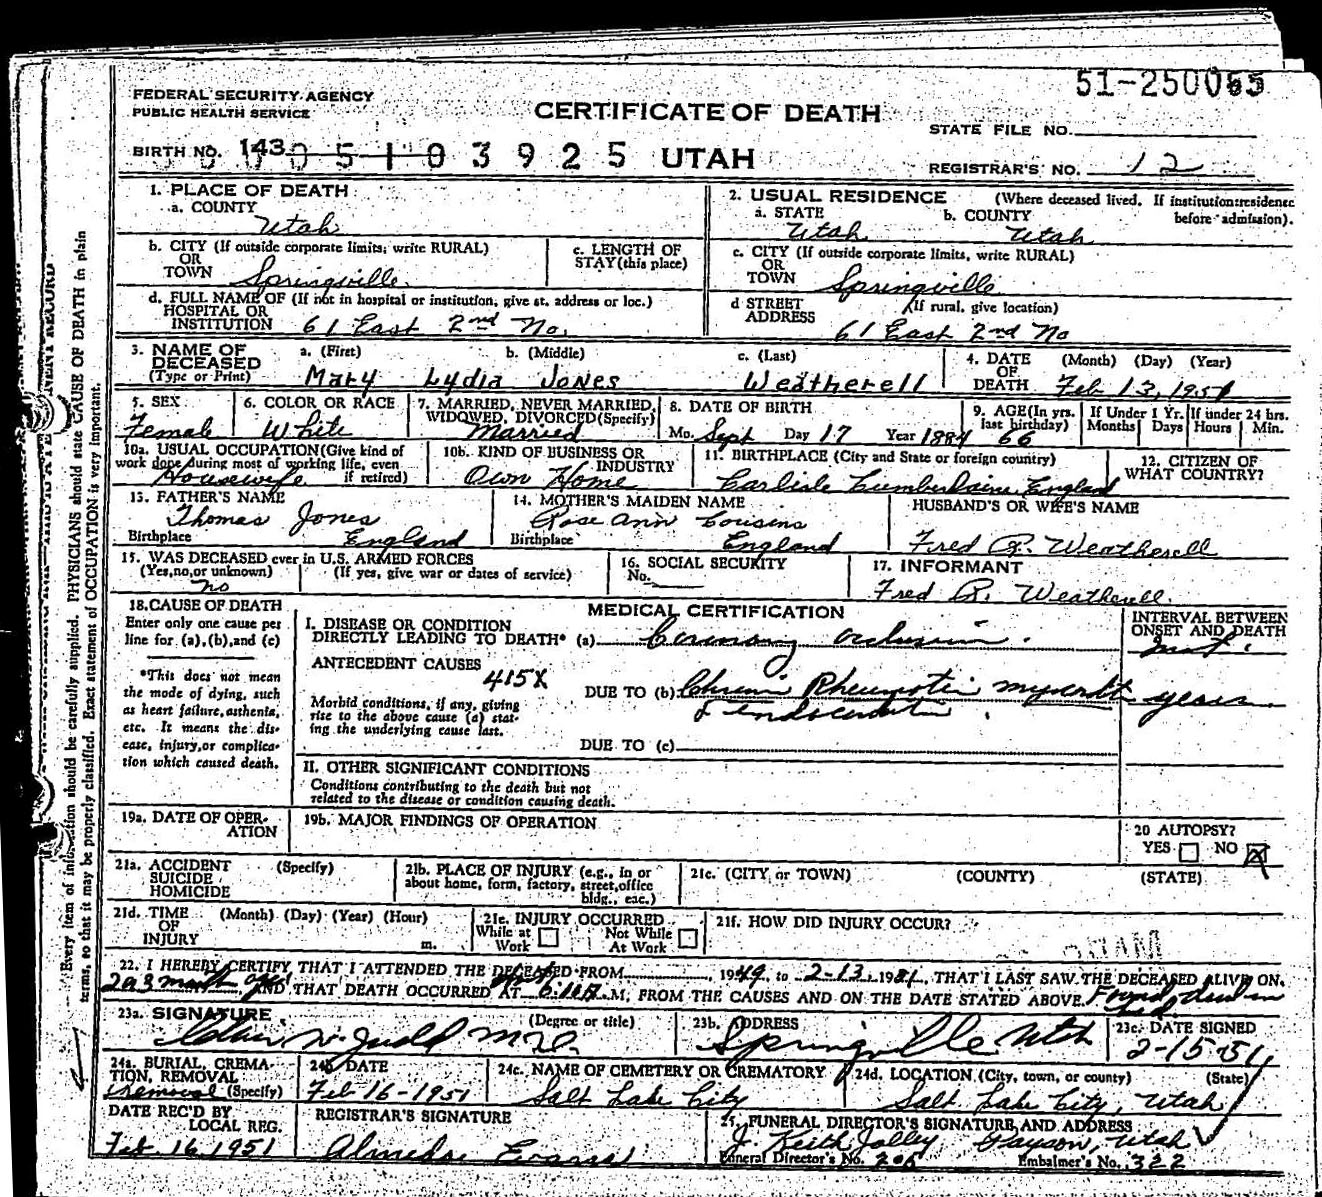 51-250065
FEDERAL SECURITY AGENCY
PUBLIC HEALTH SERVICE
CERTIFICATE OF DEATH
STATE FILE NO.
BIRTH NO. 143 5 1 0 3 9 2 5 UTAH
REGISTRAR'S NO. 12
1. PLACE OF DEATH
a. COUNTY
Utah
2. USUAL RESIDENCE (Where deceased lived. If institution: residence before admission).
a. STATE b. COUNTY
Utah Utah
b. CITY (If outside corporate limits, write RURAL)
OR
TOWN Springville
c. LENGTH OF
STAY (this place)
c. CITY (If outside corporate limits, write RURAL)
OR
TOWN Springville
d. FULL NAME OF (If not in hospital or institution, give st. address or loc.)
HOSPITAL OR
INSTITUTION 61 East 2nd No.
d STREET (If rural, give location)
ADDRESS
61 East 2nd No
3. NAME OF DECEASED
(Type or Print)
a. (First) b. (Middle) c. (Last)
Mary Lydia Jones Weatherell
4. DATE OF DEATH (Month) (Day) (Year)
Feb 13, 1951
5. SEX
Female
6. COLOR OR RACE
White
7. MARRIED, NEVER MARRIED,
WIDOWED, DIVORCED (Specify)
Married
8. DATE OF BIRTH
Mo. Sept Day 17 Year 1884
9. AGE (In yrs. last birthday)
66
If Under 1 Yr.
Months Days
If under 24 hrs.
Hours Min.
10a. USUAL OCCUPATION (Give kind of
work done during most of working life, even
if retired)
Housewife
10b. KIND OF BUSINESS OR
INDUSTRY
Own Home
11. BIRTHPLACE (City and State or foreign country)
Carlisle England
12. CITIZEN OF
WHAT COUNTRY?
13. FATHER'S NAME
Thomas Jones
Birthplace England
14. MOTHER'S MAIDEN NAME
Rose Ann Cousins
Birthplace England
HUSBAND'S OR WIFE'S NAME
Fred R. Weatherell
15. WAS DECEASED ever in U.S. ARMED FORCES
(Yes, no, or unknown) (If yes, give war or dates of service)
no
16. SOCIAL SECURITY
No.
17. INFORMANT
Fred R. Weatherell
18. CAUSE OF DEATH
Enter only one cause per
line for (a), (b), and (c)
*This does not mean
the mode of dying, such
as heart failure, asthenia,
etc. It means the dis-
ease, injury, or complica-
tion which caused death.
MEDICAL CERTIFICATION
I. DISEASE OR CONDITION
DIRECTLY LEADING TO DEATH* (a) Coronary occlusion.
ANTECEDENT CAUSES
415X
Morbid conditions, if any, giving
rise to the above cause (a) stat-
ing the underlying cause last.
DUE TO (b)
DUE TO (c)
INTERVAL BETWEEN
ONSET AND DEATH
years
II. OTHER SIGNIFICANT CONDITIONS
Conditions contributing to the death but not
related to the disease or condition causing death.
19a. DATE OF OPER-
ATION
19b. MAJOR FINDINGS OF OPERATION
20 AUTOPSY?
YES NO X
21a. ACCIDENT (Specify)
SUICIDE
HOMICIDE
21b. PLACE OF INJURY (e.g., in or
about home, form, factory, street, office
bldg., eac.)
21c. (CITY or TOWN) (COUNTY) (STATE)
21d. TIME (Month) (Day) (Year) (Hour)
OF
INJURY m.
21e. INJURY OCCURRED
While at Work Not While At Work
21f. HOW DID INJURY OCCUR?
22. I HEREBY CERTIFY THAT I ATTENDED THE DECEASED FROM 1949 to 2-13 1951, THAT I LAST SAW THE DECEASED ALIVE ON
AND THAT DEATH OCCURRED AT M. FROM THE CAUSES AND ON THE DATE STATED ABOVE.
23a. SIGNATURE (Degree or title)
M.D.
23b. ADDRESS
Springville Utah
23c. DATE SIGNED
2-15-51
24a. BURIAL, CREMA-
TION, REMOVAL
(Specify)
Removal
24b DATE
Feb 16-1951
24c. NAME OF CEMETERY OR CREMATORY
Salt Lake City
24d. LOCATION (City, town, or county) (State)
Salt Lake City, Utah
DATE REC'D BY
LOCAL REG.
Feb. 16, 1951
REGISTRAR'S SIGNATURE
Evans
25. FUNERAL DIRECTOR'S SIGNATURE AND ADDRESS
J. Keith Jolley Utah
Funeral Director's No. 206 Embalmer's No. 322
Every item of information should be carefully supplied. PHYSICIANS should state CAUSE OF DEATH in plain
terms, so that it may be properly classified. Exact statement of OCCUPATION is very important.